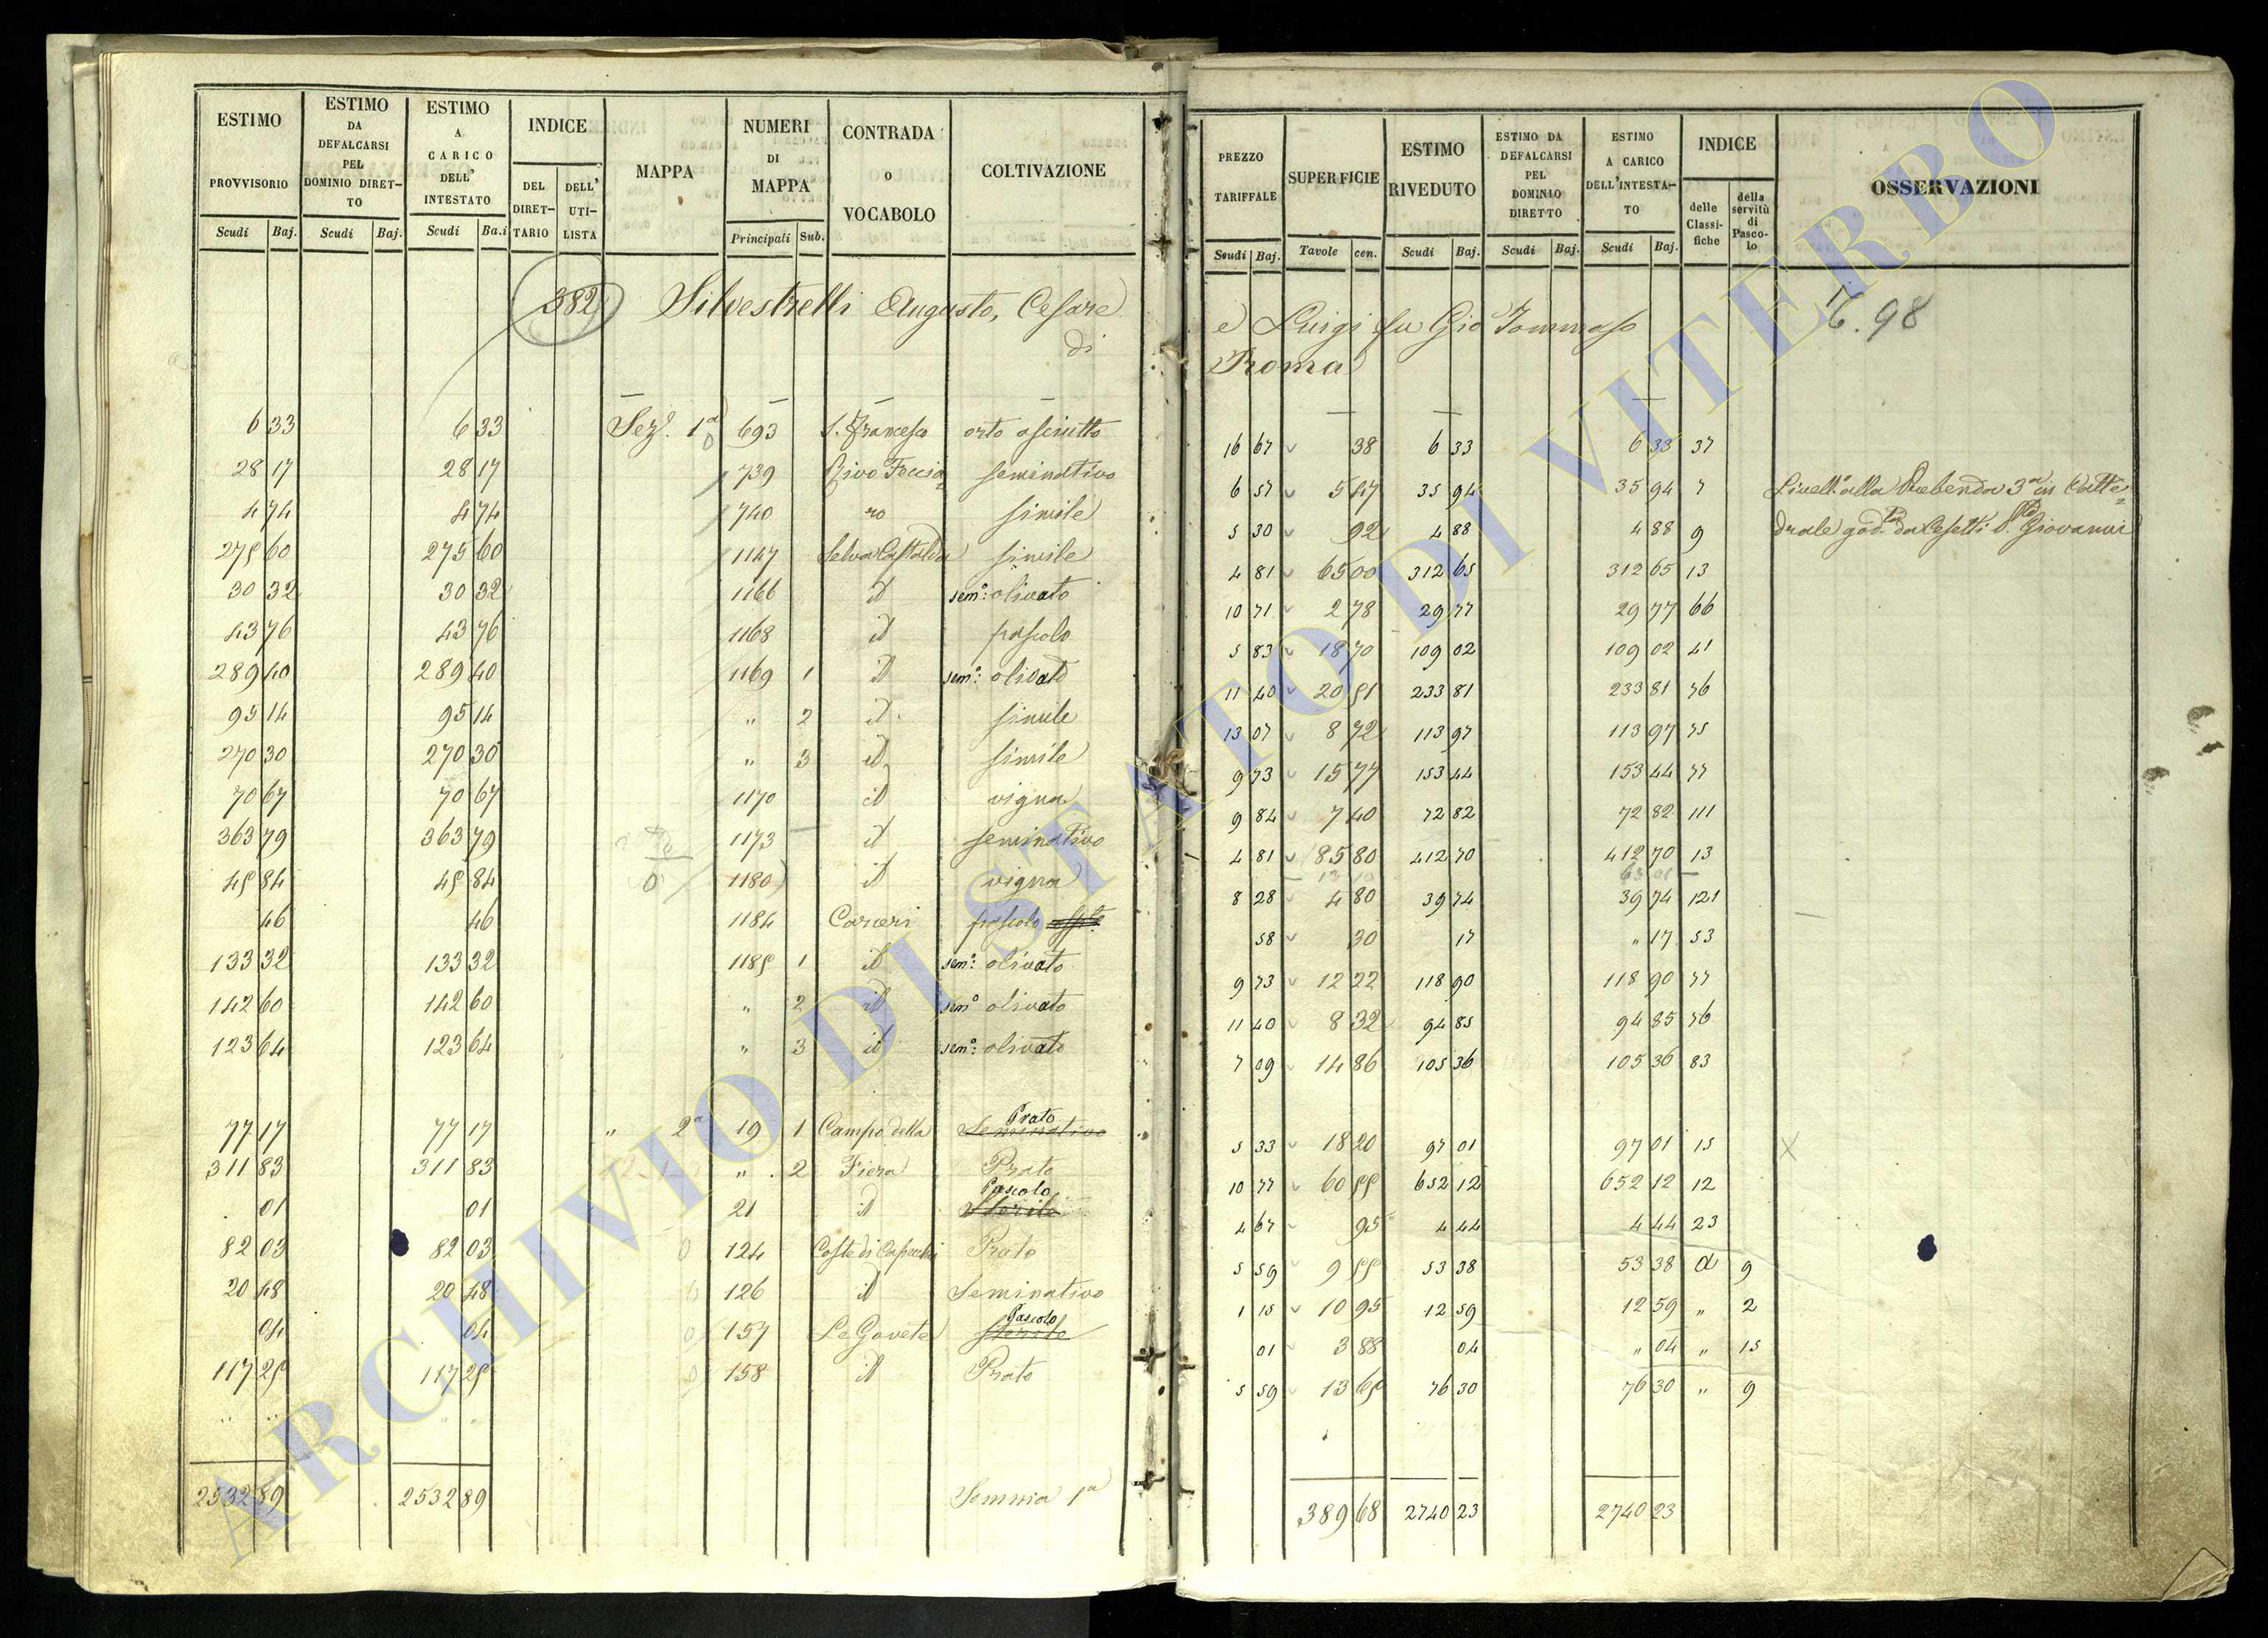 ESTIMO PROVVISORIO Scudi Baj. | ESTIMO DA DEFALCARSI PEL DOMINIO DIRET-TO Scudi Baj. | ESTIMO A CARICO DELL' INTESTATO Scudi Ba.i | INDICE DEL DIRET-TARIO DELL' UTI-LISTA | MAPPA | NUMERI DI MAPPA Principali Sub. | CONTRADA o VOCABOLO | COLTIVAZIONE
382 Silvestrelli Augusto, Cesare
di
6 33 | 6 33 | Sez. 1a 0 | 693 | S. Francesco | orto asciutto
28 17 | 28 17 | 739 | Rivo Feccia= | seminativo
4 74 | 4 74 | 740 | ro | simile
275 60 | 275 60 | 1147 | Selva Castalda | simile
30 32 | 30 32 | 1166 | id | sem.o: olivato
43 76 | 43 76 | 1168 | id | pascolo
289 40 | 289 40 | 1169 | 1 | id | sem.o: olivato
95 14 | 95 14 | " | 2 | id | simile
270 30 | 270 30 | " | 3 | id | simile
70 67 | 70 67 | 1170 | id | vigna
363 79 | 363 79 | 1173 | id | seminativo
45 84 | 45 84 | 0 | 1180 | id | vigna
46 | 46 | 1184 | Carceri | pascolo
133 32 | 133 32 | 1185 | 1 | id | sem.o: olivato
142 60 | 142 60 | " | 2 | id | sem.o olivato
123 64 | 123 64 | " | 3 | id | sem.o: olivato
Prato
77 17 | 77 17 | " 2a | 19 | 1 | Campo della | Seminativo
311 83 | 311 83 | " | 2 | Fiera | Prato
Pascolo
01 | 01 | 21 | id | Sterile
82 03 | 82 03 | 0 | 124 | Coste di Capecchi | Prato
20 48 | 20 48 | 0 | 126 | id | Seminativo
Pascolo
04 | 04 | 0 | 157 | Le Gavete | Sterile
117 25 | 117 25 | 0 | 158 | id | Prato
" " | " "
2532 89 | 2532 89 | Somma 1a
PREZZO TARIFFALE Scudi Baj. | SUPERFICIE Tavole cen. | ESTIMO RIVEDUTO Scudi Baj. | ESTIMO DA DEFALCARSI PEL DOMINIO DIRETTO Scudi Baj. | ESTIMO A CARICO DELL'INTESTA-TO Scudi Baj. | INDICE delle Classi-fiche della servitù di Pasco-lo | OSSERVAZIONI
e Luigi fu Gio Tommaso
16.98
Roma
16 67 | 38 | 6 33 | 6 33 | 37
6 57 | 5 47 | 35 94 | 35 94 | 7 | Livell.o alla Prebenda 3a in Catte=
5 30 | 92 | 4 88 | 4 88 | 9 | drale god. da Cesetti D. Giovanni
4 81 | 65 00 | 312 65 | 312 65 | 13
10 71 | 2 78 | 29 77 | 29 77 | 66
5 83 | 18 70 | 109 02 | 109 02 | 41
11 40 | 20 51 | 233 81 | 233 81 | 76
13 07 | 8 72 | 113 97 | 113 97 | 75
9 73 | 15 77 | 153 44 | 153 44 | 77
9 84 | 7 40 | 72 82 | 72 82 | 111
4 81 | 85 80 | 412 70 | 412 70 | 13
13 10
8 28 | 4 80 | 39 74 | 39 74 | 121
58 | 30 | 17 | " 17 | 53
9 73 | 12 22 | 118 90 | 118 90 | 77
11 40 | 8 32 | 94 85 | 94 85 | 76
7 09 | 14 86 | 105 36 | 105 36 | 83
5 33 | 18 20 | 97 01 | 97 01 | 15 | X
10 77 | 60 55 | 652 12 | 652 12 | 12
4 67 | 95 | 4 44 | 4 44 | 23
5 59 | 9 55 | 53 38 | 53 38 | a | 9
1 15 | 10 95 | 12 59 | 12 59 | " | 2
01 | 3 88 | 04 | " 04 | " | 15
5 59 | 13 65 | 76 30 | 76 30 | " | 9
389 68 | 2740 23 | 2740 23
ARCHIVIO DI STATO DI VITERBO